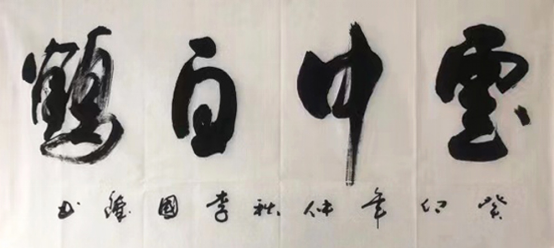 雲中白鶴
癸卯年仲秋李國鍾书